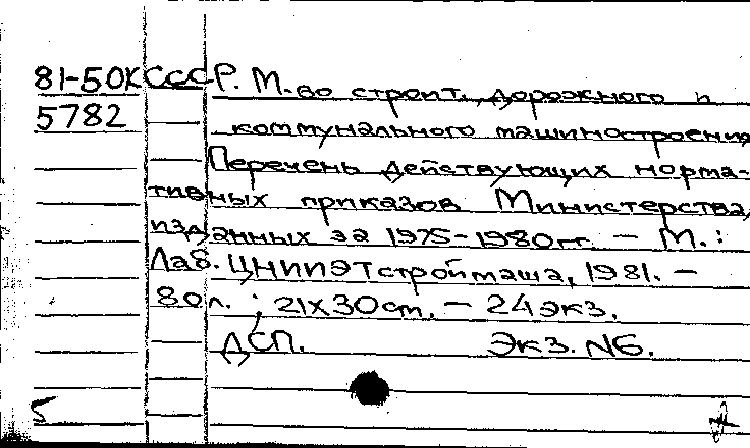 81-50К СССР. М-во строит., дорожного и
5782 коммунального машиностроения
Перечень действующих норма-
тивных приказов Министерства,
изданных за 1975-1980гг. - М.:
Лаб. ЦНИИЭТстроймаша, 1981. -
80л. ; 21х30ст. - 24экз.
ДСП. Экз. N6.
5